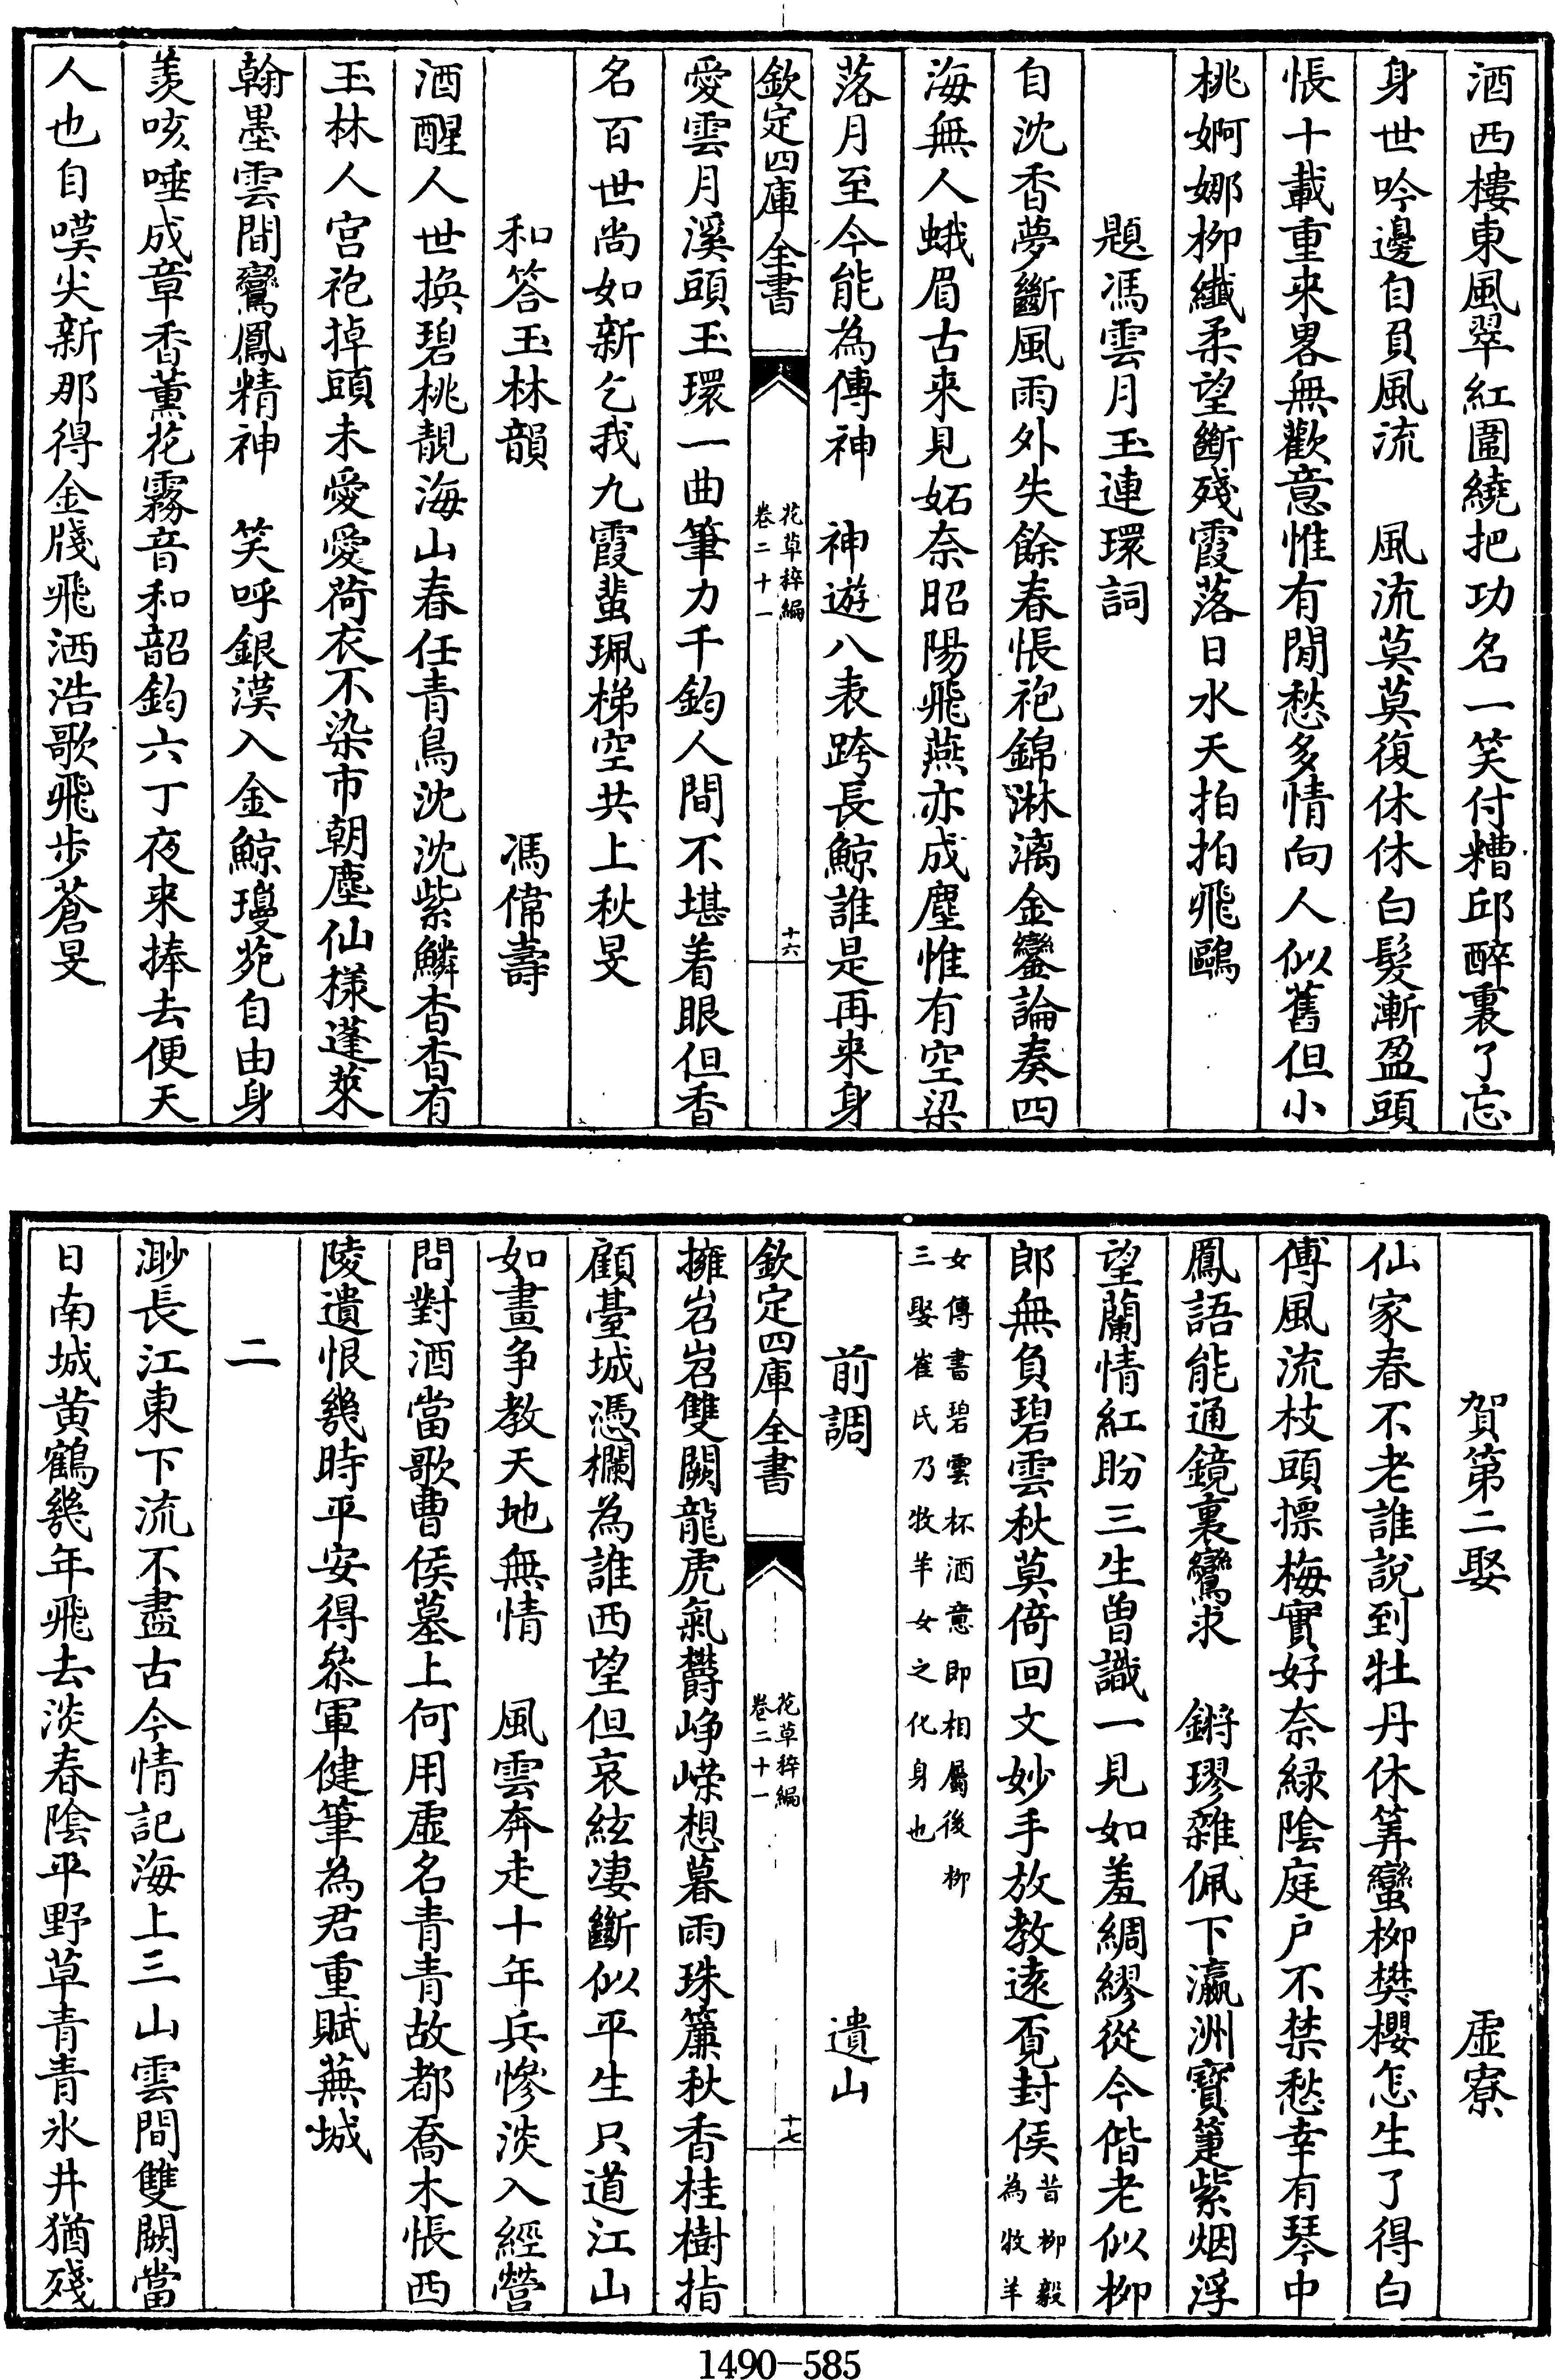 酒西樓東風翠紅圍繞把功名一笑付糟邱醉裏了忘
身世吟邊自負風流　風流莫莫復休休白髮漸盈頭
悵十載重来畧無歡意惟有閒愁多情向人似舊但小
桃婀娜柳纖柔望斷殘霞落日水天拍拍飛鷗
題馮雲月玉連環詞
自沈香夢斷風雨外失餘春悵袍錦淋漓金鑾論奏四
海無人蛾眉古来見妬奈昭陽飛燕亦成塵惟有空梁
落月至今能為傳神　神遊八表跨長鯨誰是再来身
欽定四庫全書
花草稡編
卷二十一
十六
愛雲月溪頭玉環一曲筆力千鈞人間不堪着眼但香
名百世尚如新乞我九霞蜚珮梯空共上秋旻
和答玉林韻　馮偉壽
酒醒人世換碧桃靚海山春任青鳥沈沈紫鱗杳杳有
玉林人宫袍掉頭未愛愛荷衣不染市朝塵仙樣蓬萊
翰墨雲間鸞鳳精神　笑呼銀漢入金鯨瓊苑自由身
羨咳唾成章香薰花霧音和韶鈞六丁夜来捧去便天
人也自嘆尖新那得金牋飛洒浩歌飛步蒼旻
賀第二娶　虚寮
仙家春不老誰說到牡丹休筭蠻柳樊櫻怎生了得白
傅風流枝頭摽梅實好奈緑陰庭户不禁愁幸有琴中
鳳語能通鏡裏鸞求　鏘璆雜佩下瀛洲寳篆紫烟浮
望蘭情紅盼三生曽識一見如羞綢繆從今偕老似柳
郎無負碧雲秋莫倚回文妙手放教逺覔封侯昔柳毅為牧羊
女傳書碧雲杯酒意即相屬後柳
三娶崔氏乃牧羊女之化身也
前調　遺山
欽定四庫全書
花草稡編
卷二十一
十七
擁岧岧雙闕龍虎氣欝崢嶸想暮雨珠簾秋香桂樹指
顧臺城憑欄為誰西望但哀絃凄斷似平生只道江山
如畫争教天地無情　風雲奔走十年兵慘淡入經營
問對酒當歌曹侯墓上何用虚名青青故都喬木悵西
陵遺恨幾時平安得叅軍健筆為君重賦蕪城
二
渺長江東下流不盡古今情記海上三山雲間雙闕當
日南城黄鶴幾年飛去淡春陰平野草青青氷井猶殘
1490-585